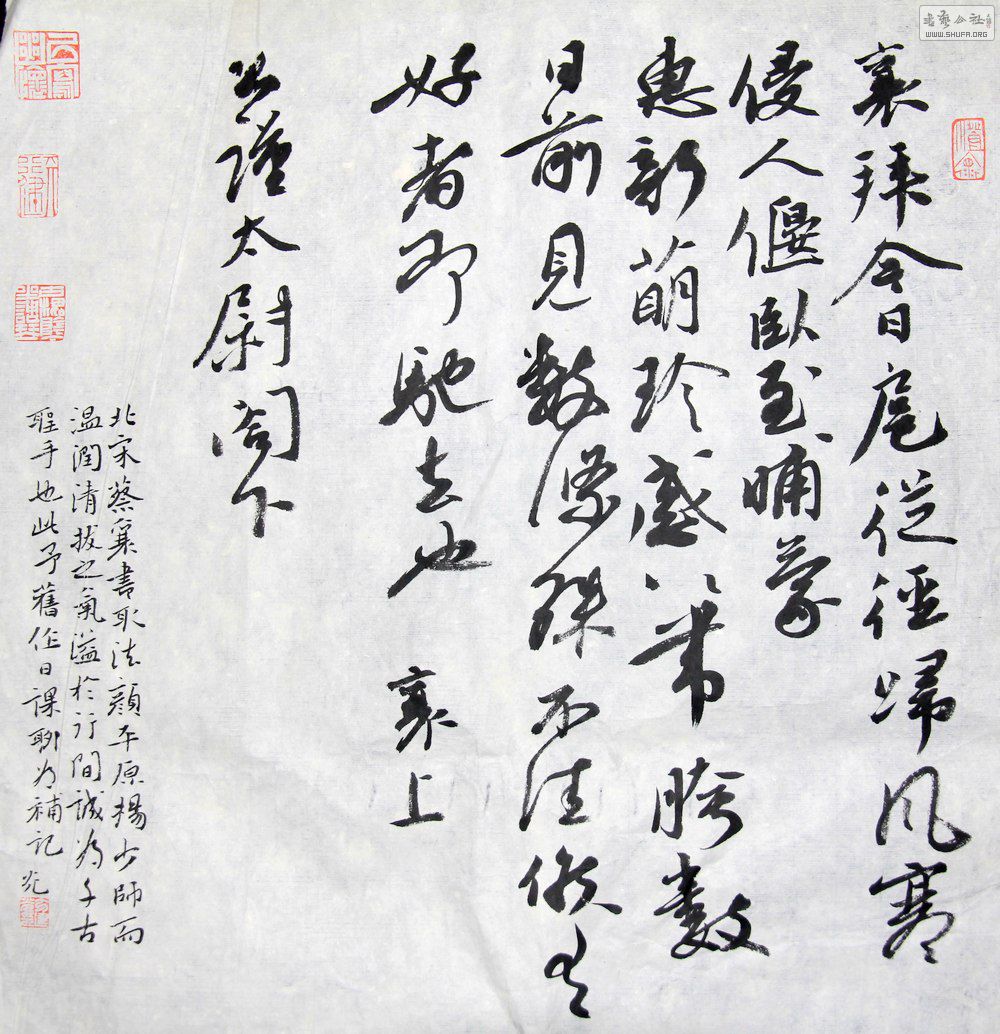 襄拜今日扈從徑歸風寒
侵人偃臥至晡蒙
惠新萌珍感帶胯數
日前見數條殊不佳候有
好者即馳去也 襄上
公謹太尉閤下
北宋蔡襄書取法顏平原楊少師而
溫潤清拔之氣溢於行間誠為千古
聖手也此予舊作日課聊為補記
書藝公社
WWW.SHUFA.ORG